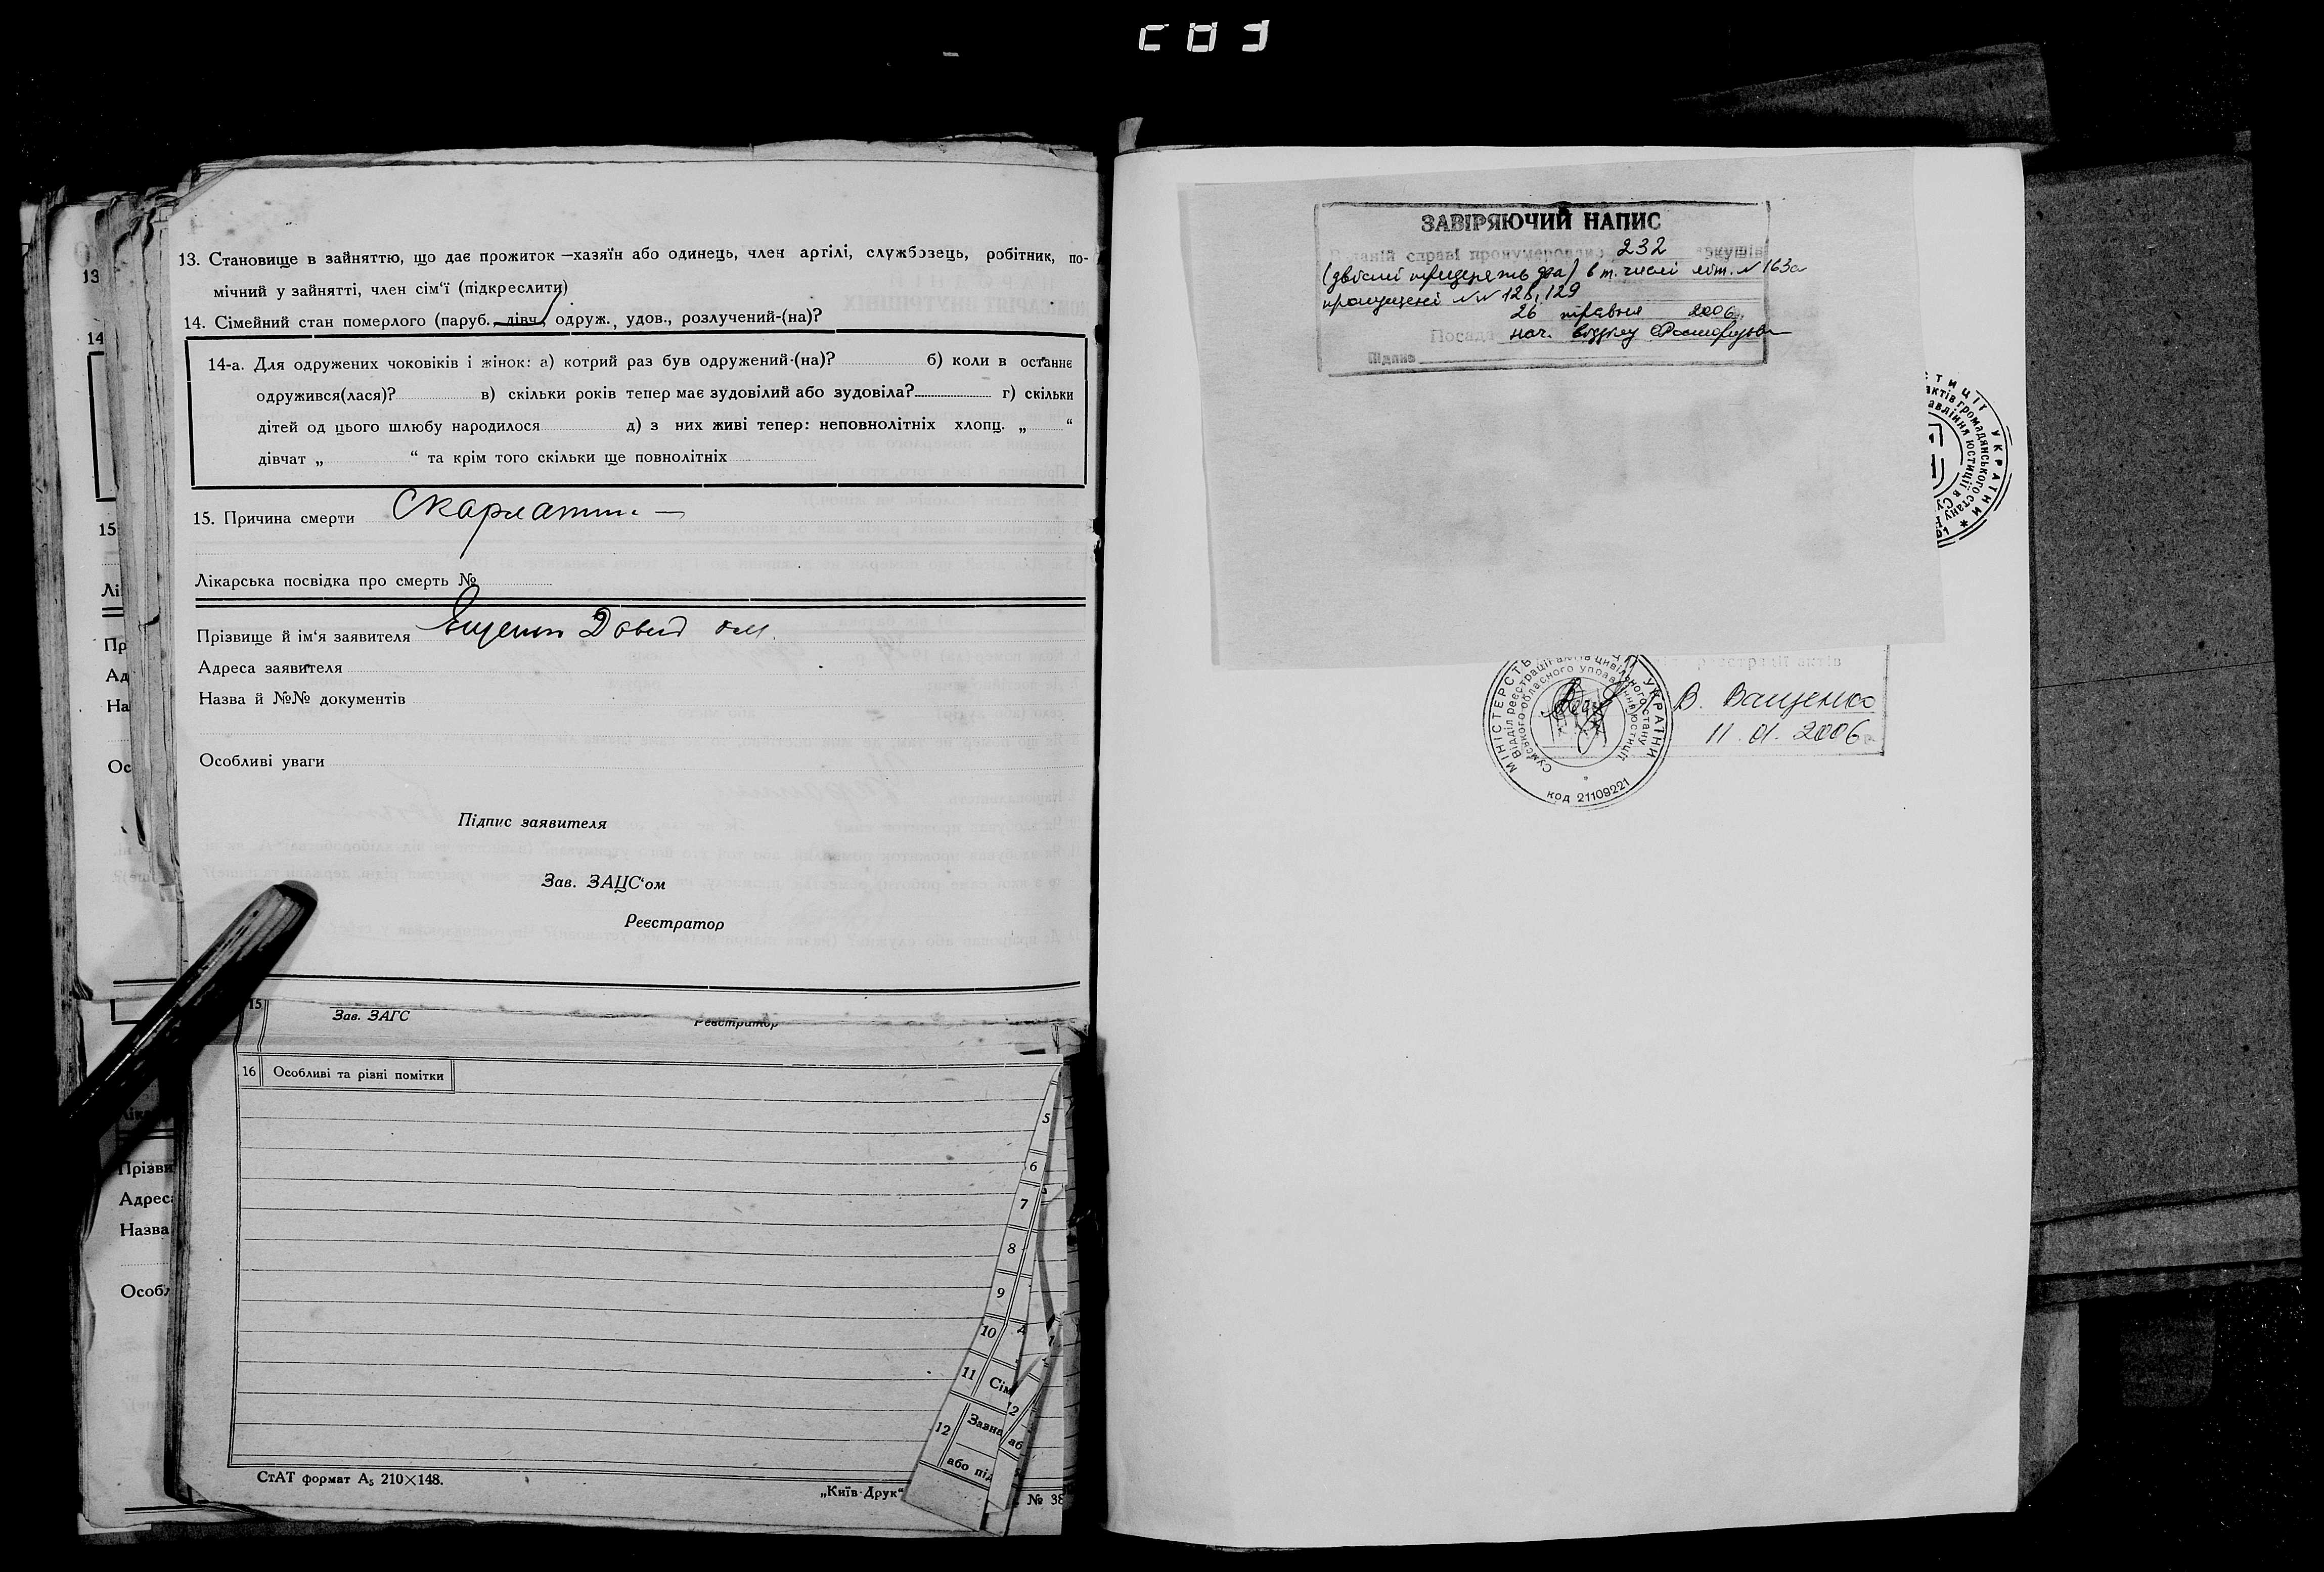 13. Становище в зайняттю, що дає прожиток —хазяїн або одинець, член артілі, службовець, робітник, по-
мічний у зайнятті, член сім'ї (підкреслити)
14. Сімейний стан померлого (паруб. дівч., одруж., удов., розлучений-(на)?
14-а. Для одружених чоковіків і жінок: а) котрий раз був одружений-(на)? б) коли в останнє
одружився(лася)? в) скільки років тепер має зудовілий або зудовіла? г) скільки
дітей од цього шлюбу народилося д) з них живі тепер: неповнолітніх хлопц. „ “
дівчат „ “ та крім того скільки ще повнолітніх
15. Причина смерти Скарлатина —
Лікарська посвідка про смерть №
Прізвище й ім'я заявителя Давид
Адреса заявителя
Назва й №№ документів
Особливі уваги
Підпис заявителя
Зав. ЗАЦС'ом
Реєстратор
15
Зав. ЗАГС
Реєстратор
16 Особливі та різні помітки
5
6
7
8
9
10
11 Сім
12 Завна
або під
СтАТ формат А5 210×148.
„Київ-Друк“
№ 38
13
14
15
Лі
Пр
Ад
На
Ос
Прізви
Адреса
Назва
Особл
ЗАВІРЯЮЧИЙ НАПИС
В даній справі пронумеровано 232 аркушів
(двісті тридцять два) в т. числі літ. № 163а
пропущені №№ 128, 129
26 травня 2006.
Посада нач. відділу
Підпис
реєстрації актів
В. Ващенко
11.01.2006 р.
МІНІСТЕРСТВО ЮСТИЦІЇ УКРАЇНИ
Відділ реєстрації актів цивільного стану
Сумського обласного управління юстиції
код 21109221